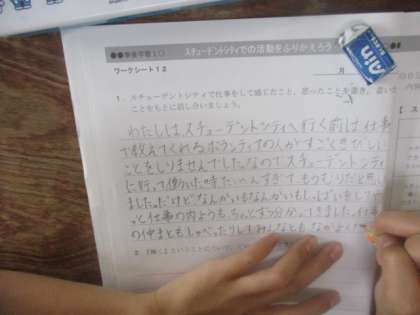 ●●事後学習1
スチューデントシティでの活動をふりかえろう
ワークシート12
月
1. スチューデントシティで仕事をして感じたこと、思ったことを書き、書いた
ことをもとに話し合いましょう。
わたしはスチューデントシティへ行く前は仕事
で教えてくれるボランティアの人がすごくきびしい
ことをしりませんでした。なのでスチューデントシティ
に行って働いた時たいへんすぎてもうむりだと思い
ました。だけどなんかいもなんかいもしっぱいをして
っと仕事の内ようもちょっとずつ分かってきました。仕事
の仲まともしゃべったりしてみんなとも
2